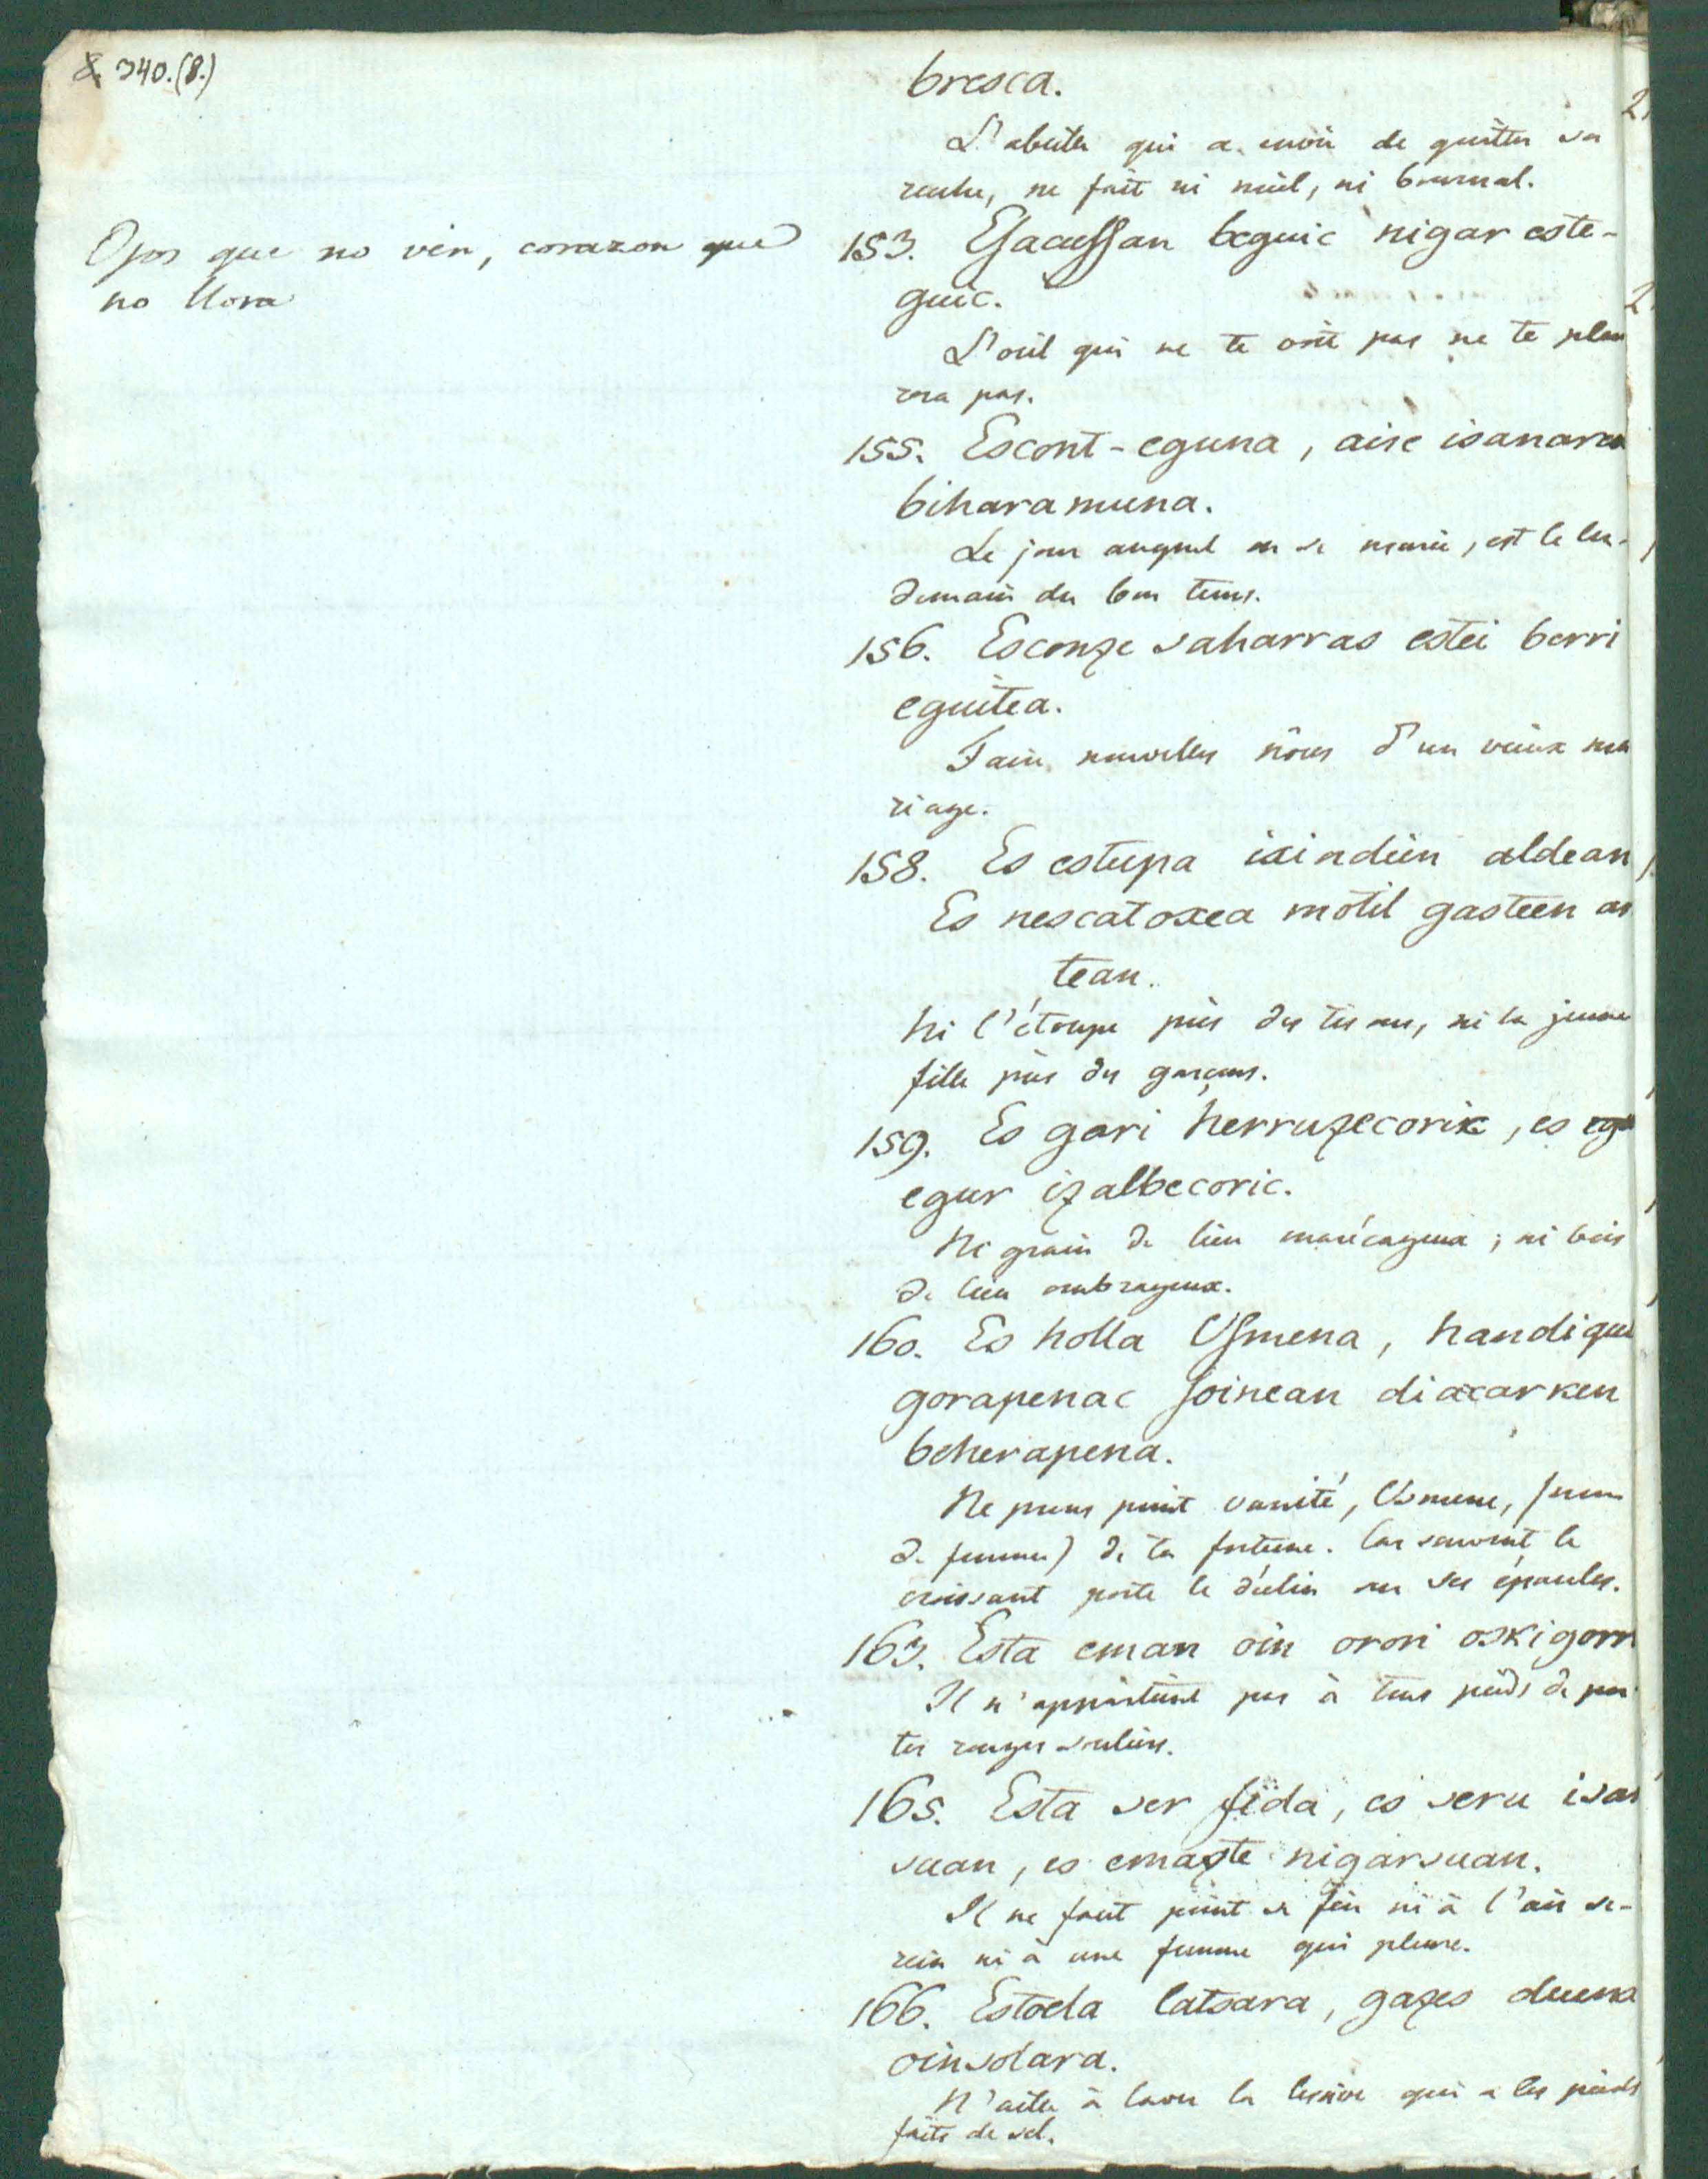 340.(8.)
bresca.
L'abeille qui a envie de quitter sa
ruche, ne fait ni miel, ni bournal.
Ojos que no ven, corazon que
no llora
153. Esacussan beguic nigar este-
guic.
L'oeil qui ne te voit pas ne te pleu
rera pas.
155. Escont-eguna, aise isanaren
biharamuna.
Le jour auquel on se marie, est le len-
demain du bon tems.
156. Esconze saharras estei berri
eguitea.
Faire nouvelles nôces d'un vieux ma
riage.
158. Es estupa ixindien aldean
Es nescatoxea motil gasteen ar
tean.
Ni l'étoupe près des tisons, ni la jeune
fille près des garçons.
159. Es gari herruzecoric, es
egur izalbecoric.
Ni grain de lieu marécageux; ni bois
de lieu ombrageux.
160. Es holla Usmena, handigui
gorapenac soinean diaxarken
beherapena.
Ne prens point vanité, Usmene, (nom
de femme) de ta fortune. Car souvent le
croissant porte le déclin sur ses épaules.
163. Esta eman oin orori oskigorri
Il n'appartient pas à tous pieds de por
ter rouges souliers.
165. Esta ser fida, es seru isar
suan, es emazte nigarsuan.
Il ne faut point se fier ni à l'air se-
rein ni à une femme qui pleure.
166. Estoela latsara, gazes duena
oinsolara.
N'aille à laver la lessive qui a les pieds
faits de sel.